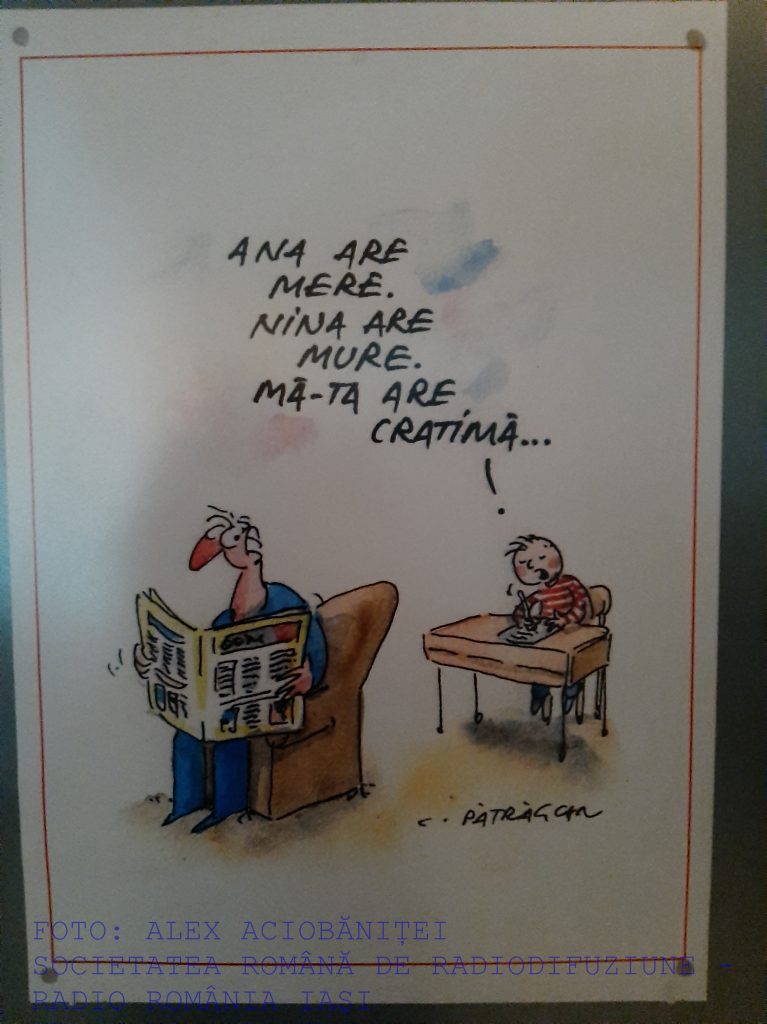 ANA ARE
MERE.
NINA ARE
MURE.
MĂ-TA ARE
CRATIMĂ...
C. PĂTRĂȘCAN
FOTO: ALEX ACIOBĂNIȚEI
SOCIETATEA ROMÂNĂ DE RADIODIFUZIUNE -
RADIO ROMÂNIA IAȘI